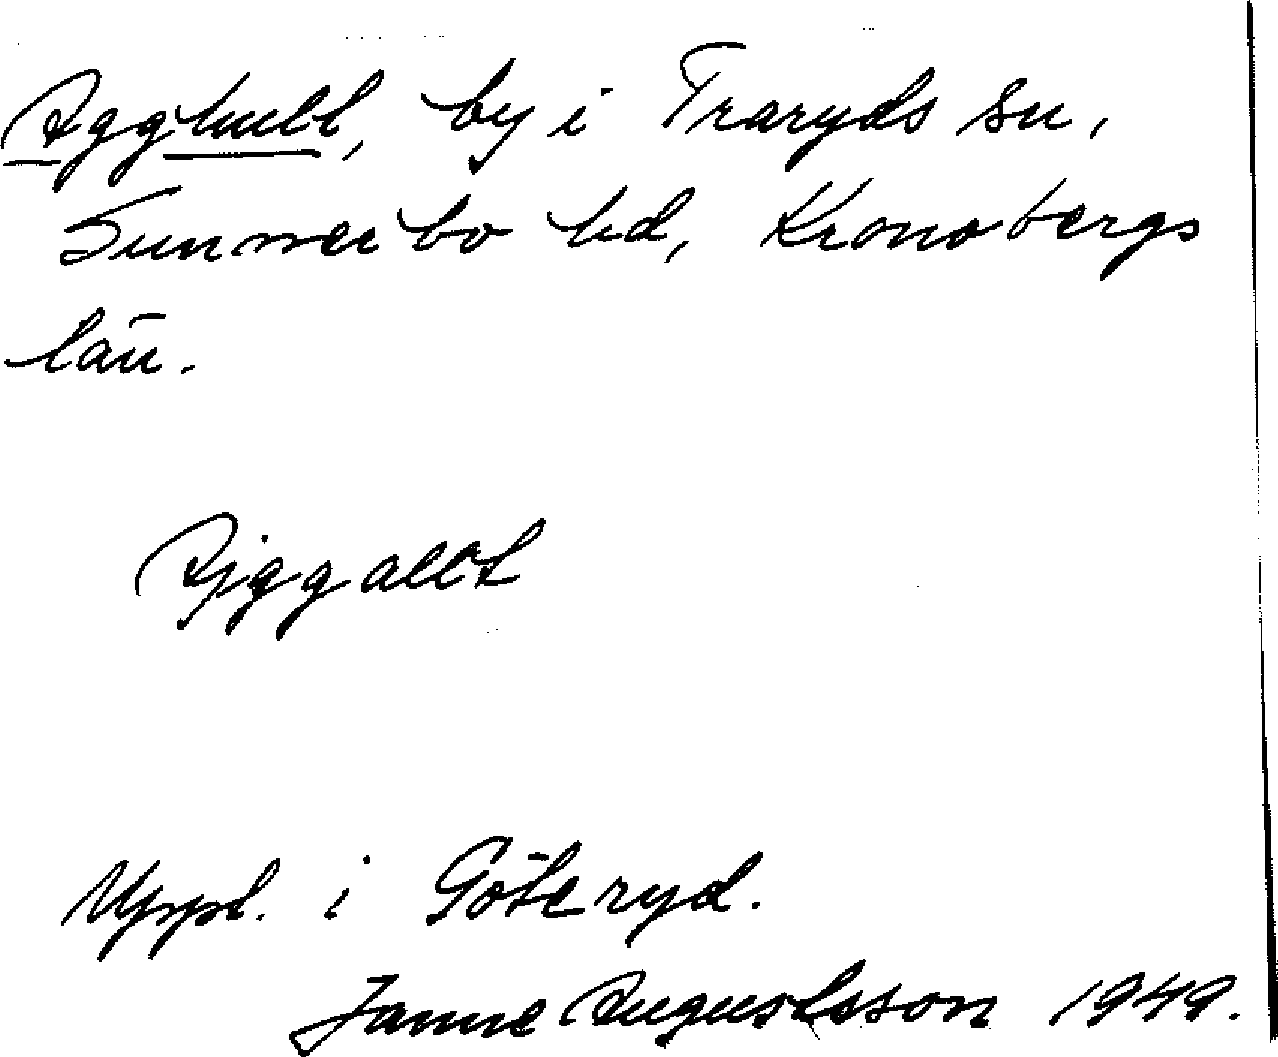 Agghult, by i Traryds sn,
Sunnerbo hd, Kronobergs
län.
Ajggallt
Uppt. i Göteryd.
Janne Augustsson 1949.